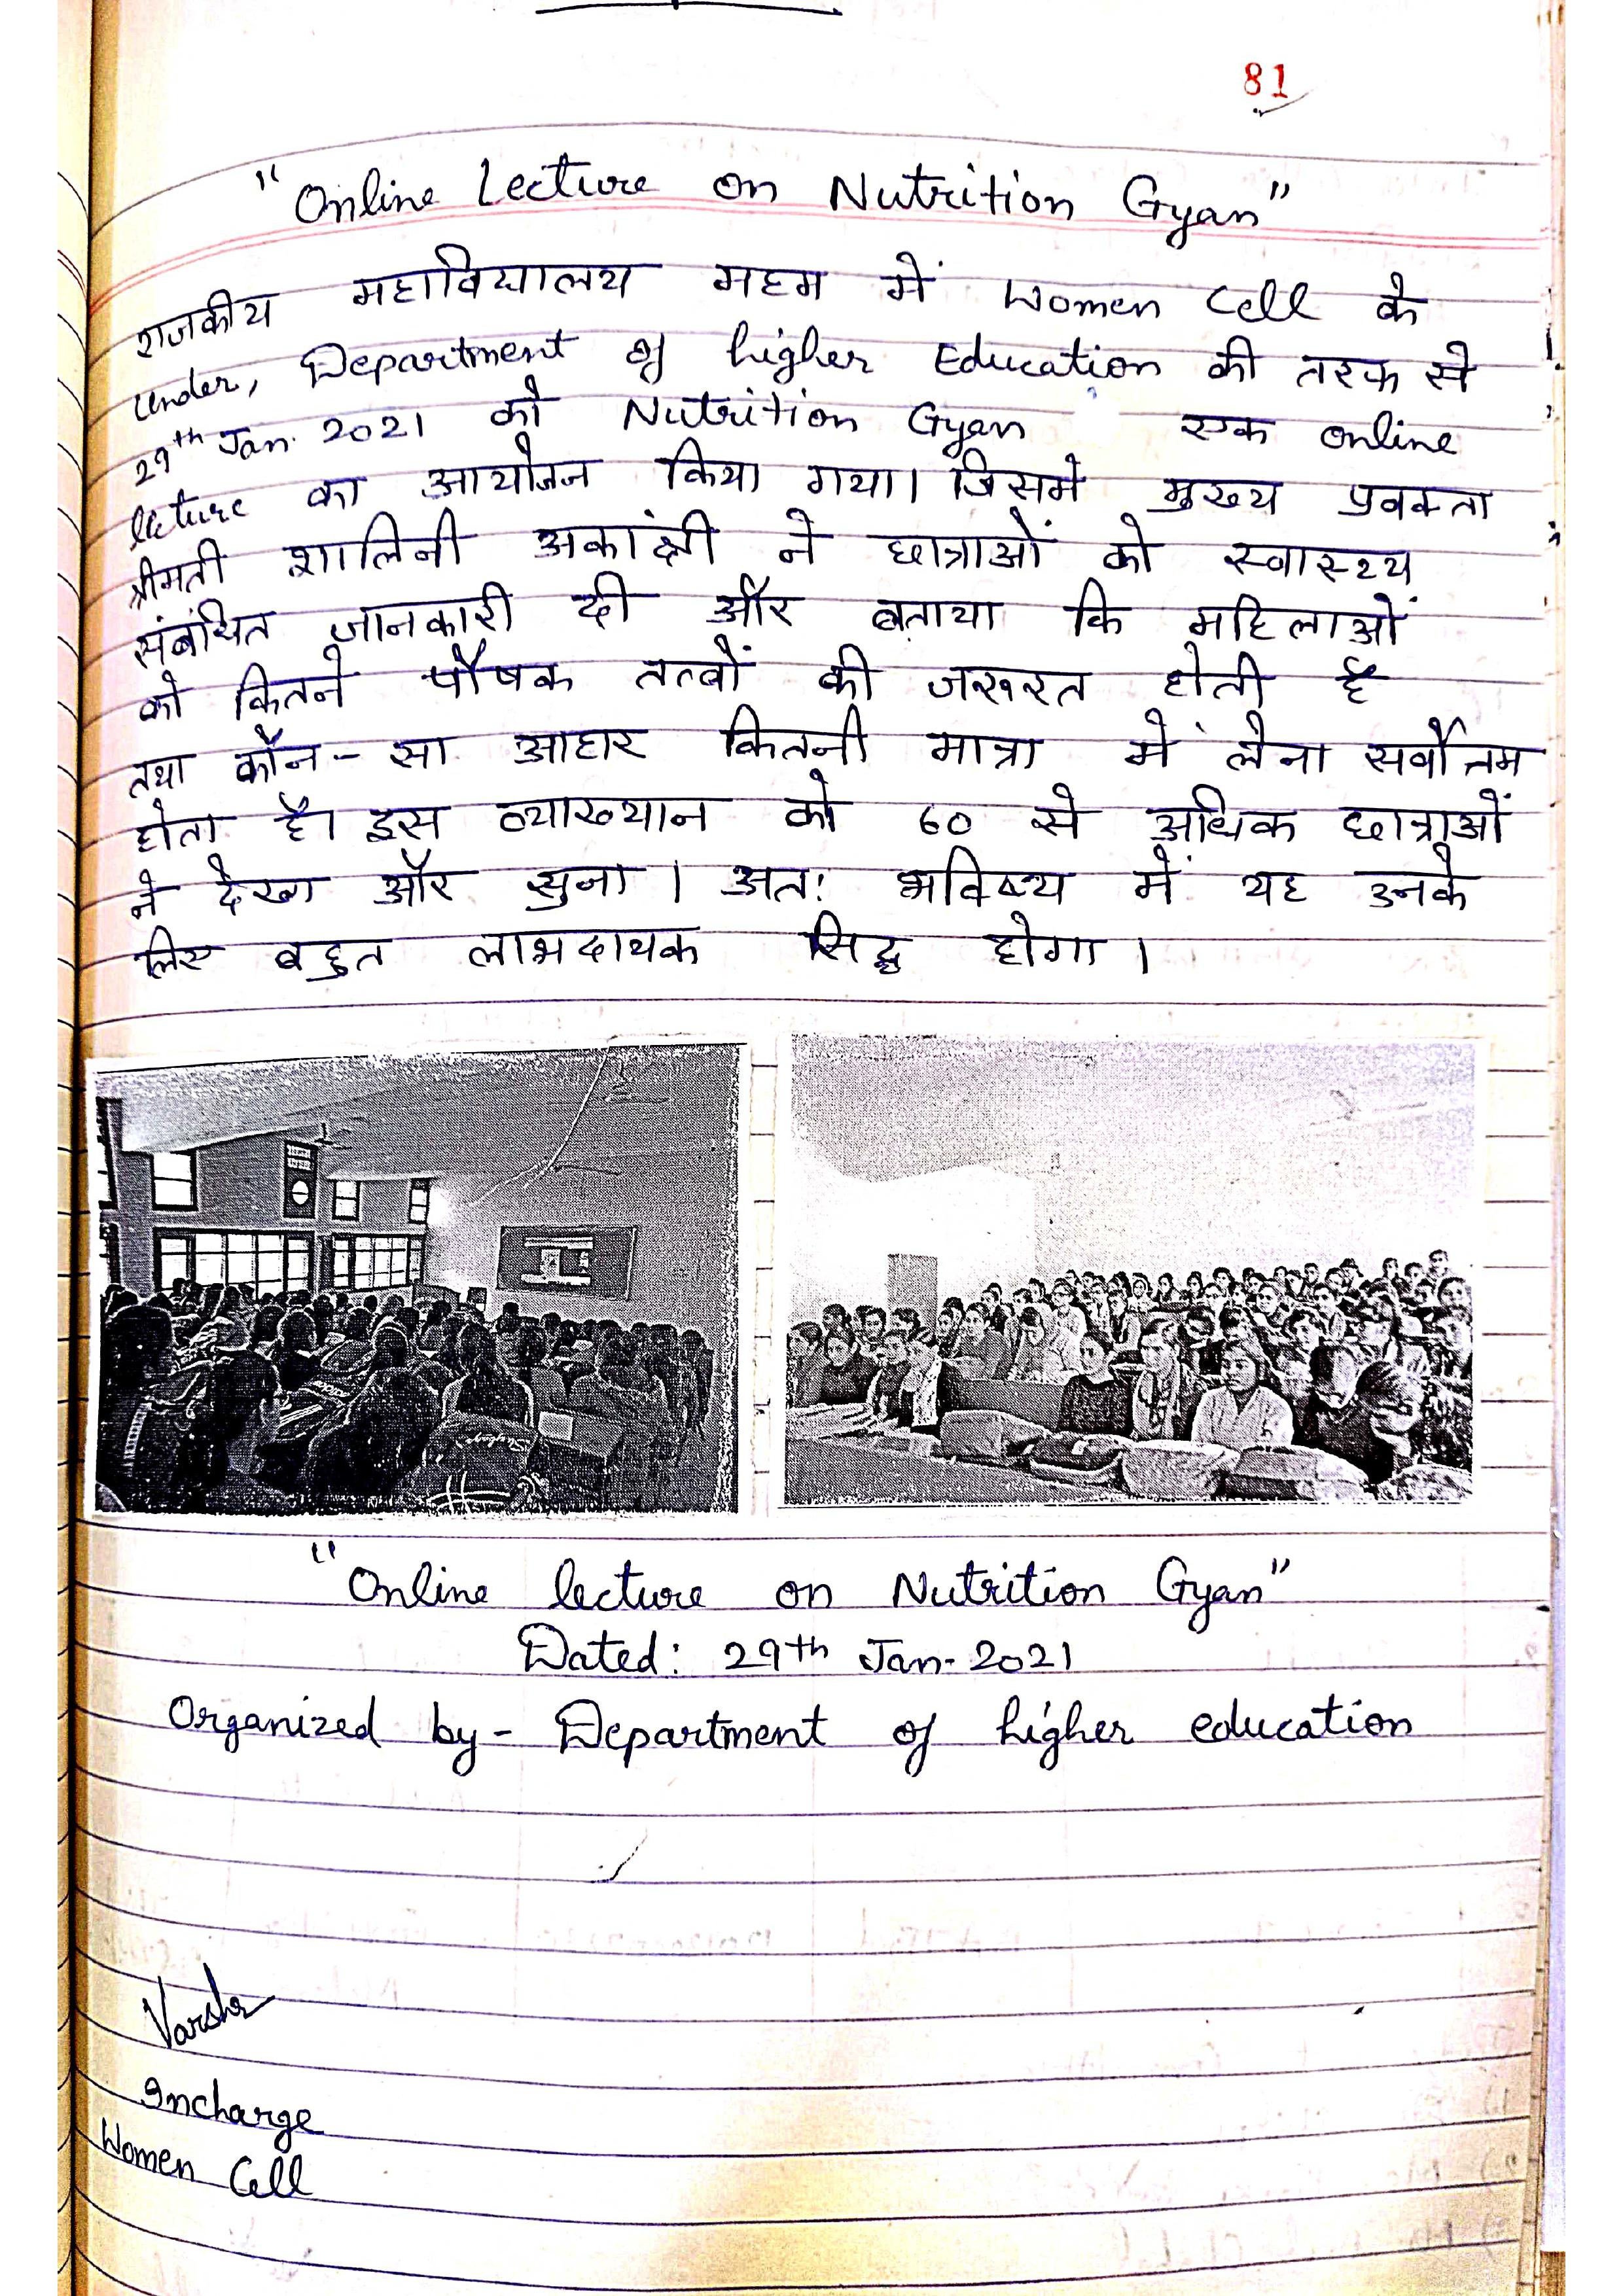 81
"Online Lecture on Nutrition Gyan"
राजकीय महाविद्यालय महम में Women Cell के
under, Department of higher Education की तरफ से
29th Jan. 2021 को Nutrition Gyan एक online
lecture का आयोजन किया गया। जिसमे मुख्य प्रवक्ता
श्रीमती शालिनी अकांक्षी ने छात्राओं को स्वास्थ्य
संबंधित जानकारी दी और बताया कि महिलाओं
को कितने पौषक तत्वों की जरुरत होती है
तथा कौन-सा आहार कितनी मात्रा में लेना सर्वोत्तम
होता है। इस व्याख्यान को 60 से अधिक छात्राओं
ने देखा और सुना। अत: भविष्य में यह उनके
लिए बहुत लाभदायक सिद्ध होगा।
"Online lecture on Nutrition Gyan"
Dated: 29th Jan-2021
Organized by - Department of higher education
Varsha
Incharge
Women Cell